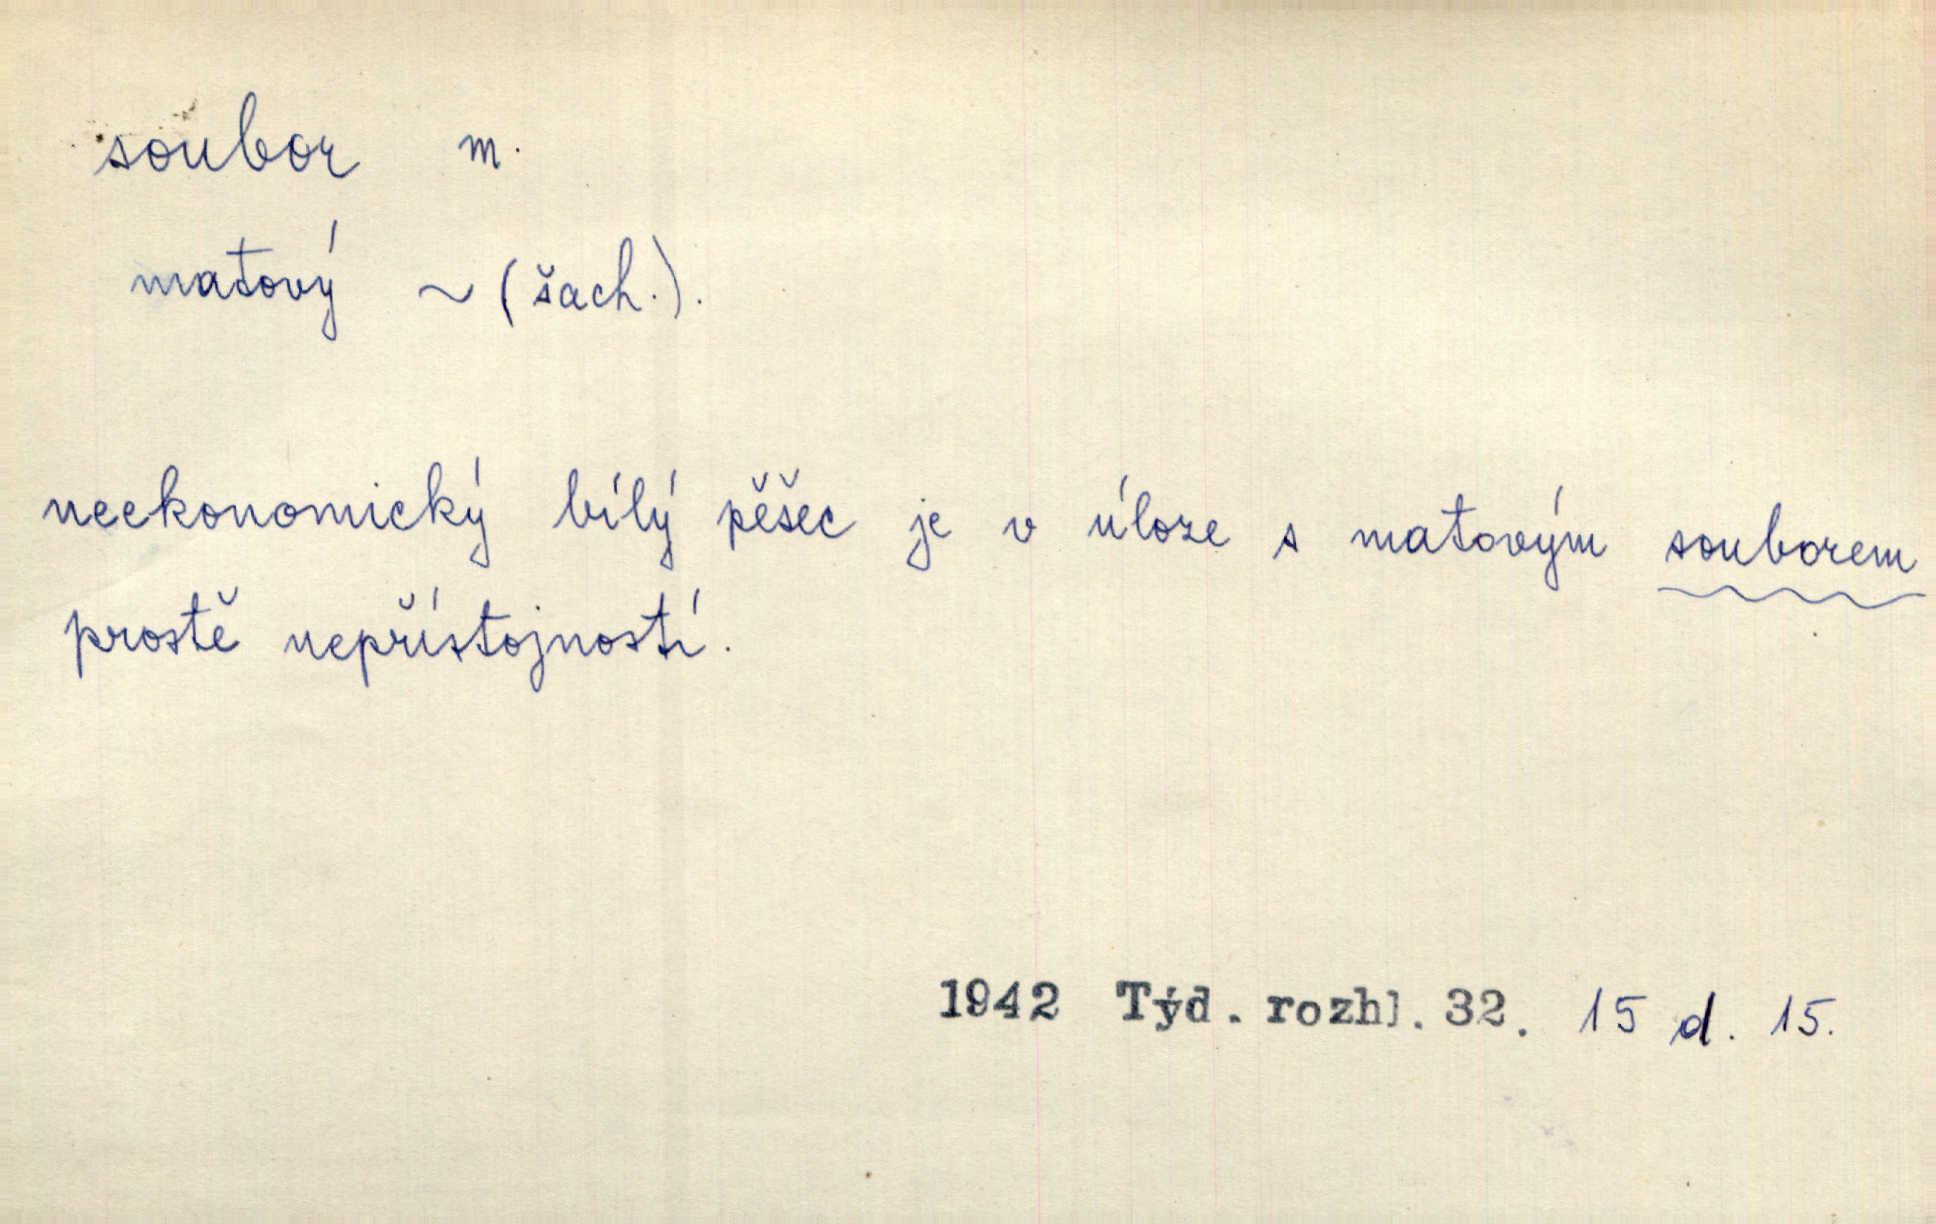 soubor m.
matový ~ (šach.).
neekonomický bílý pěšec je v úloze s matovým souborem
prostě nepřístojností.
1942 Týd. rozhl. 32. 15 d. 15.